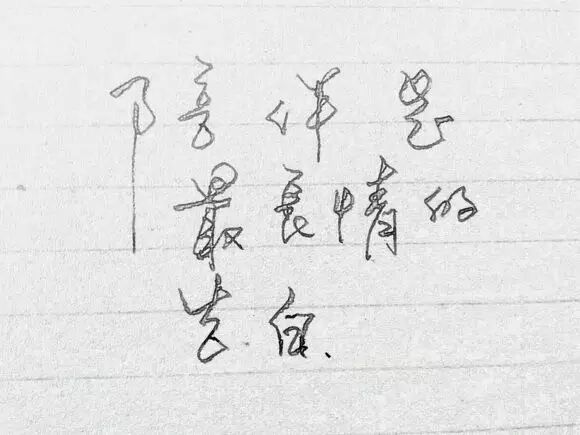 陪伴是
最长情的
告白.